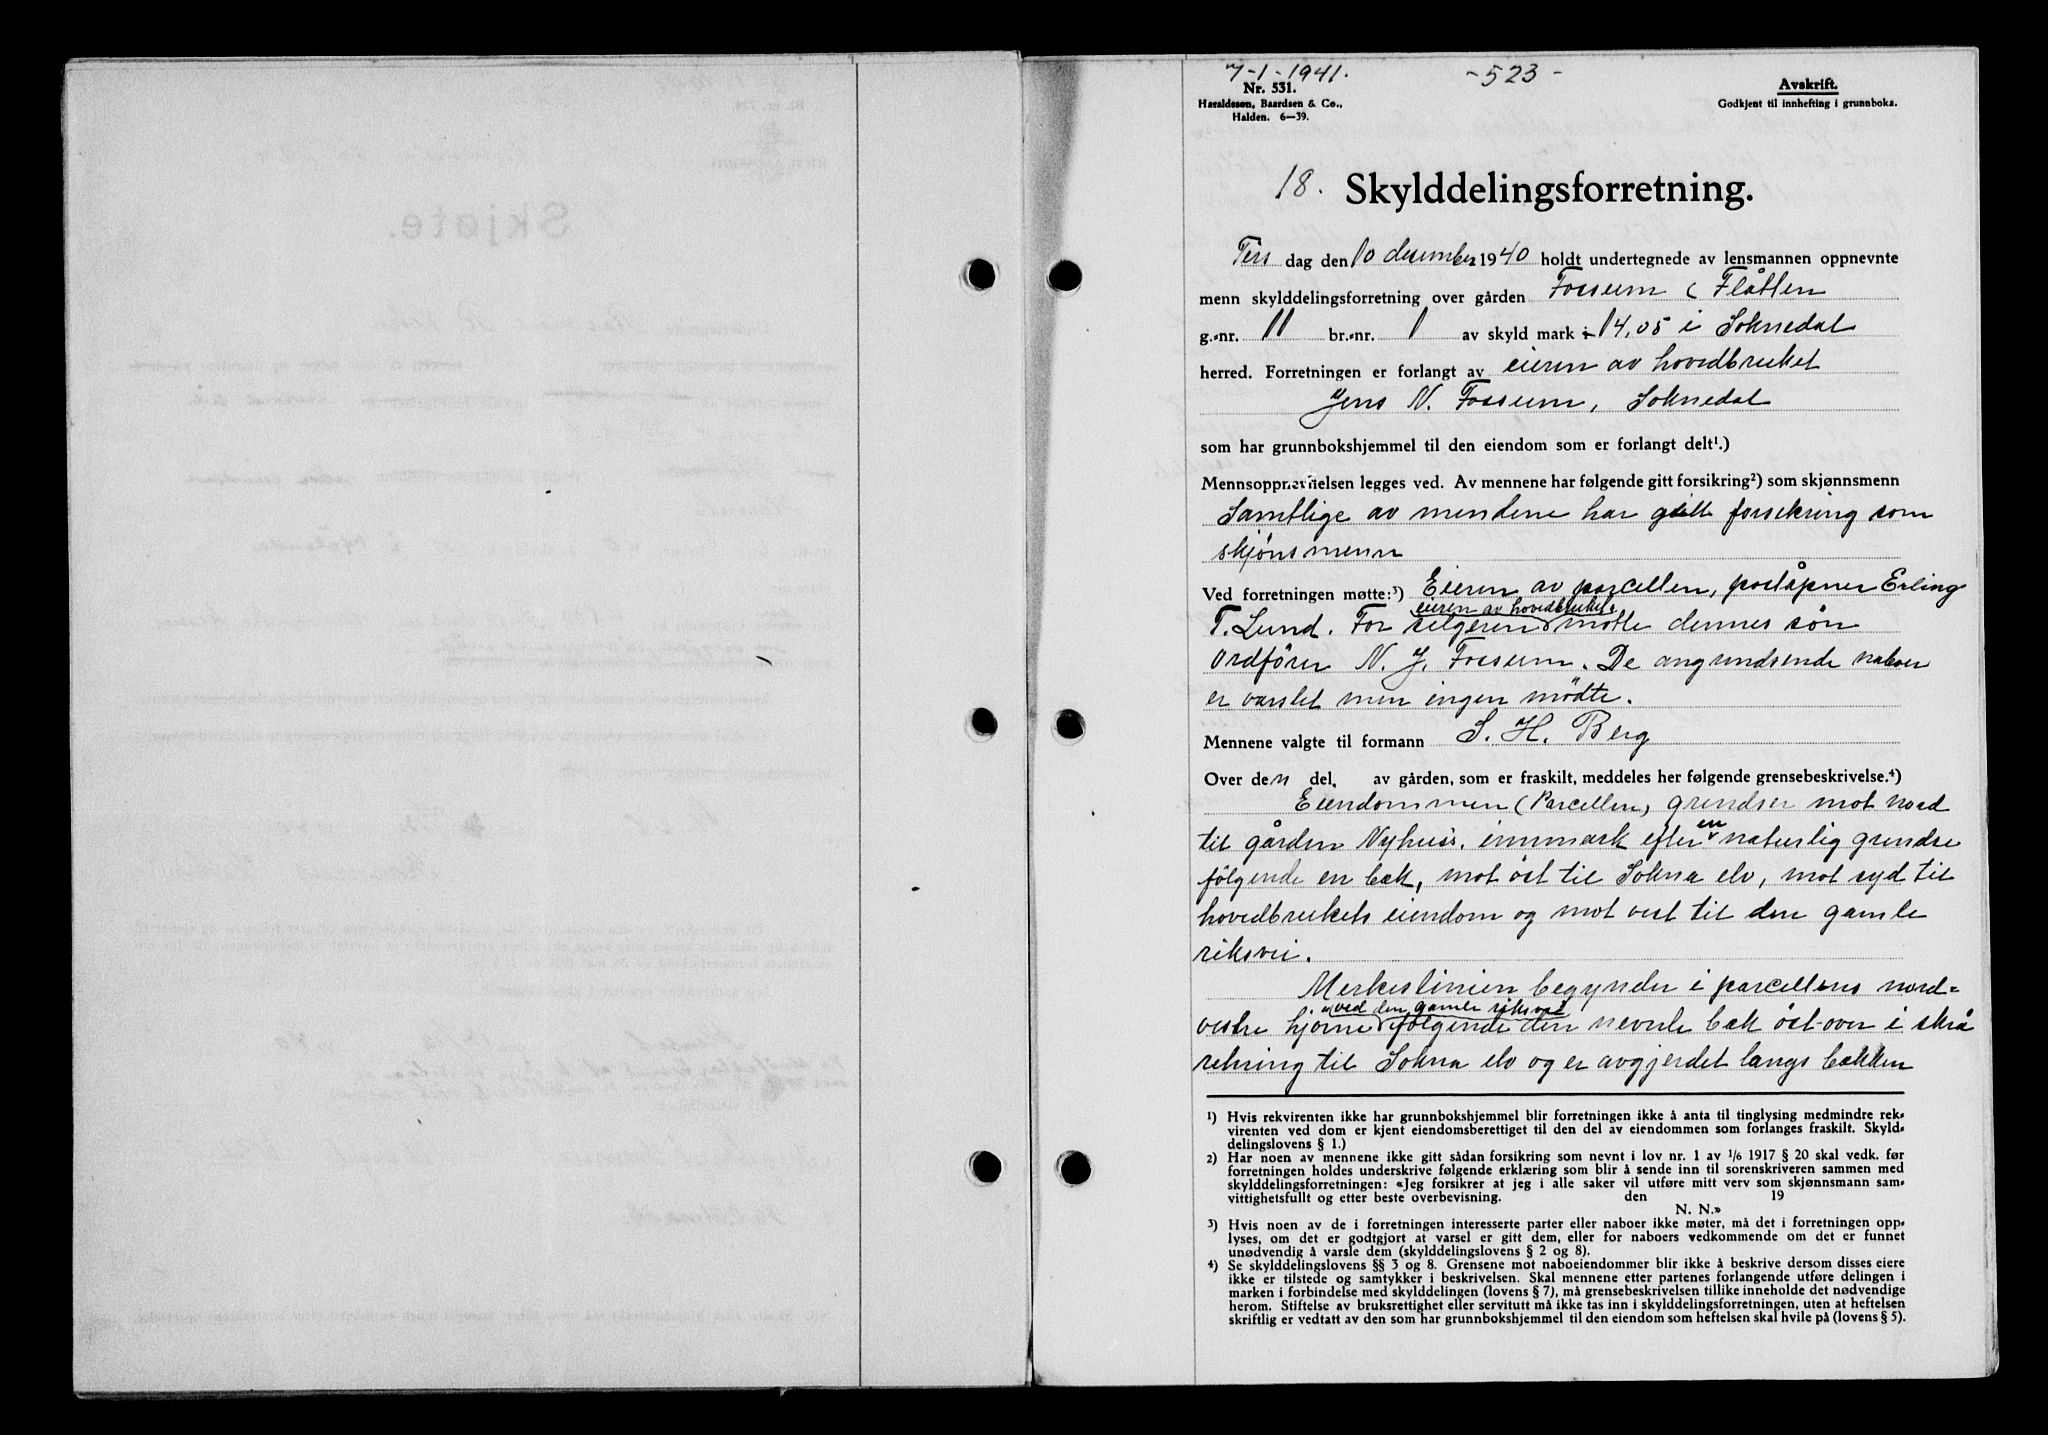 7-1-1941.
- 523 -
Nr. 531.
Haraldssen, Baardsen & Co.,
Halden. 6—39.
Avskrift.
Godkjent til innhefting i grunnboka.
18. Skylddelingsforretning.
Tirs dag den 10 desember 1940 holdt undertegnede av lensmannen oppnevnte
menn skylddelingsforretning over gården Fossum ( Flåtten
g.-nr. 11 br.-nr. 1 av skyld mark 14,05 i Soknedal
herred. Forretningen er forlangt av eieren av hovedbruket
Jens N. Fossum, Soknedal
som har grunnbokshjemmel til den eiendom som er forlangt delt¹.)
Mennsoppnevnelsen legges ved. Av mennene har følgende gitt forsikring²) som skjønnsmenn
Samtlige av mendene har gitt forsikring som
skjönsmenn
Ved forretningen møtte:³) Eieren av parcellen, poståpner Erling
eieren av hovedbruket
T. Lund. For selgeren møtte dennes sön
Ordförer N. J. Fossum. De angrendsende naboer
er varslet men ingen mödte.
Mennene valgte til formann S. H. Berg
Over den del. av gården, som er fraskilt, meddeles her følgende grensebeskrivelse.⁴)
Eiendommen (Parcellen) grendser mot nord
til gården Nyhus, innmark efter en naturlig grendse
fölgende en bæk, mot öst til Sokna elv, mot syd til
hovedbrukets eiendom og mot vest til den gamle
riksvei.
Merkeslinien begynder i parcellens nord-
ved den gamle riksvei
vestre hjörne fölgende den nevnte bæk öst-over i skrå
retning til Sokna elv og er avgjerdet langs bækken
¹) Hvis rekvirenten ikke har grunnbokshjemmel blir forretningen ikke å anta til tinglysing medmindre rek-
virenten ved dom er kjent eiendomsberettiget til den del av eiendommen som forlanges fraskilt. Skyld-
delingslovens § 1.)
²) Har noen av mennene ikke gitt sådan forsikring som nevnt i lov nr. 1 av ¹/₆ 1917 § 20 skal vedk. før
forretningen holdes underskrive følgende erklæring som blir å sende inn til sorenskriveren sammen med
skylddelingsforretningen: «Jeg forsikrer at jeg i alle saker vil utføre mitt verv som skjønnsmann sam-
vittighetsfullt og etter beste overbevisning. den 19
N. N.»
³) Hvis noen av de i forretningen interesserte parter eller naboer ikke møter, må det i forretningen opp-
lyses, om det er godtgjort at varsel er gitt dem, eller for naboers vedkommende om det er funnet
unødvendig å varsle dem (skylddelingslovens § 2 og 8).
⁴) Se skylddelingslovens §§ 3 og 8. Grensene mot naboeiendommer blir ikke å beskrive dersom disses eiere
ikke er tilstede og samtykker i beskrivelsen. Skal mennene etter partenes forlangende utføre delingen i
marken i forbindelse med skylddelingen (lovens § 7), må grensebeskrivelsen tillike inneholde det nødvendige
herom. Stiftelse av bruksrettighet eller servitutt må ikke tas inn i skylddelingsforretningen, uten at heftelsen
skriftlig er vedtatt av den som har grunnbokshjemmel til den eiendom som heftelsen skal hvile på (lovens § 5).